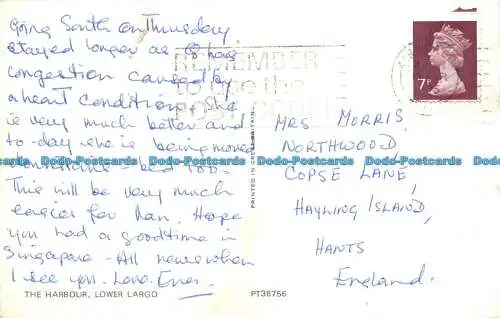 Going South on Thursday
stayed longer as
congestion caused by
a heart condition. She
is very much better and
to-day she is being moved
This will be very much
easier for Nan. Hope
you had a good time in
Singapore - All news when
I see you. Love.
THE HARBOUR, LOWER LARGO
PT36756
PRINTED IN GREAT BRITAIN
REMEMBER
to use the
POSTCODE
7P
MRS MORRIS
NORTHWOOD
COPSE LANE,
HAYLING ISLAND,
HANTS
England.
Dodo-Postcards.com Dodo-Postcards.com Dodo-Postcards.com